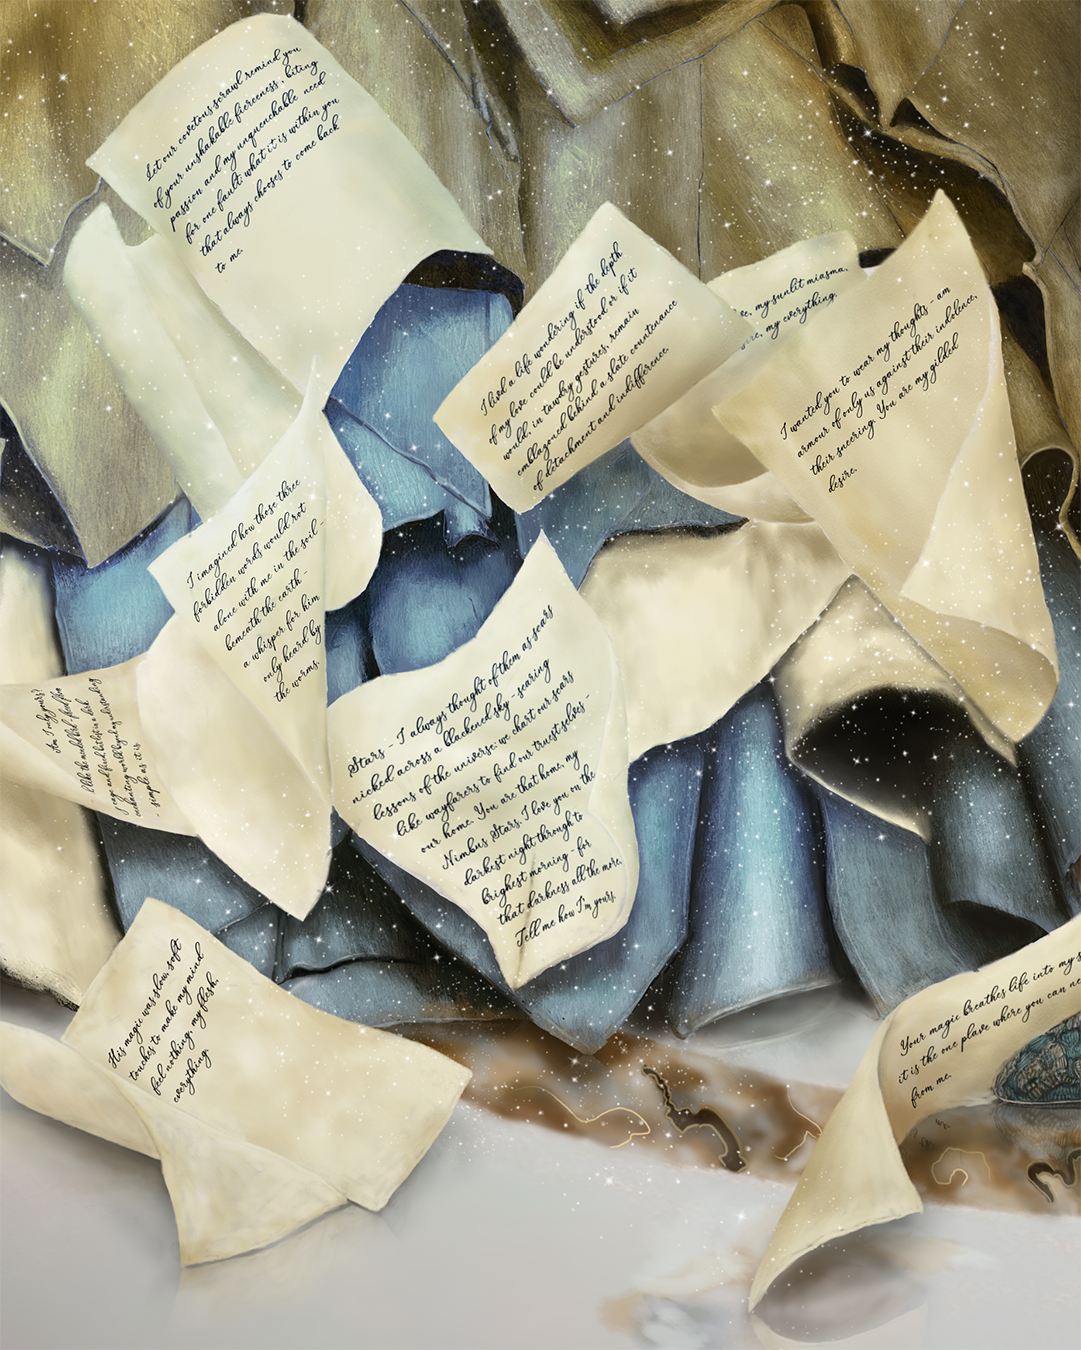 Let our covetous scrawl remind you
of your unshakable fierceness, biting
passion and my unquenchable need
for one fault: what it is within you
that always chooses to come back
to me.
I lived a life wondering if the depth
of my love could be understood or if it
would, in tawdry gestures, remain
emblazoned behind a slate countenance
of detachment and indifference.
se, my sunlit miasma,
sire, my everything.
I wanted you to wear my thoughts - am
armour of only us against their indolence,
their sneering. You are my gilded
desire.
I imagined how those three
forbidden words would not
alone with me in the soil -
beneath the earth -
a whisper for him
only heard by
the worms.
Am I not yours?
simple as it is
Stars - I always thought of them as scars
nicked across a blackened sky - searing
lessons of the universe: we chart our scars
like wayfarers to find our truest selves -
our home. You are that home, my
Nimbus Stars. I love you on the
darkest night through to
brighest morning - for
that darkness all the more.
Tell me how I'm yours.
His magic was slow, soft
touches to make my mind
feel nothing; my flesh,
everything.
Your magic breathes life into my s
it is the one plave where you can ne
from me.